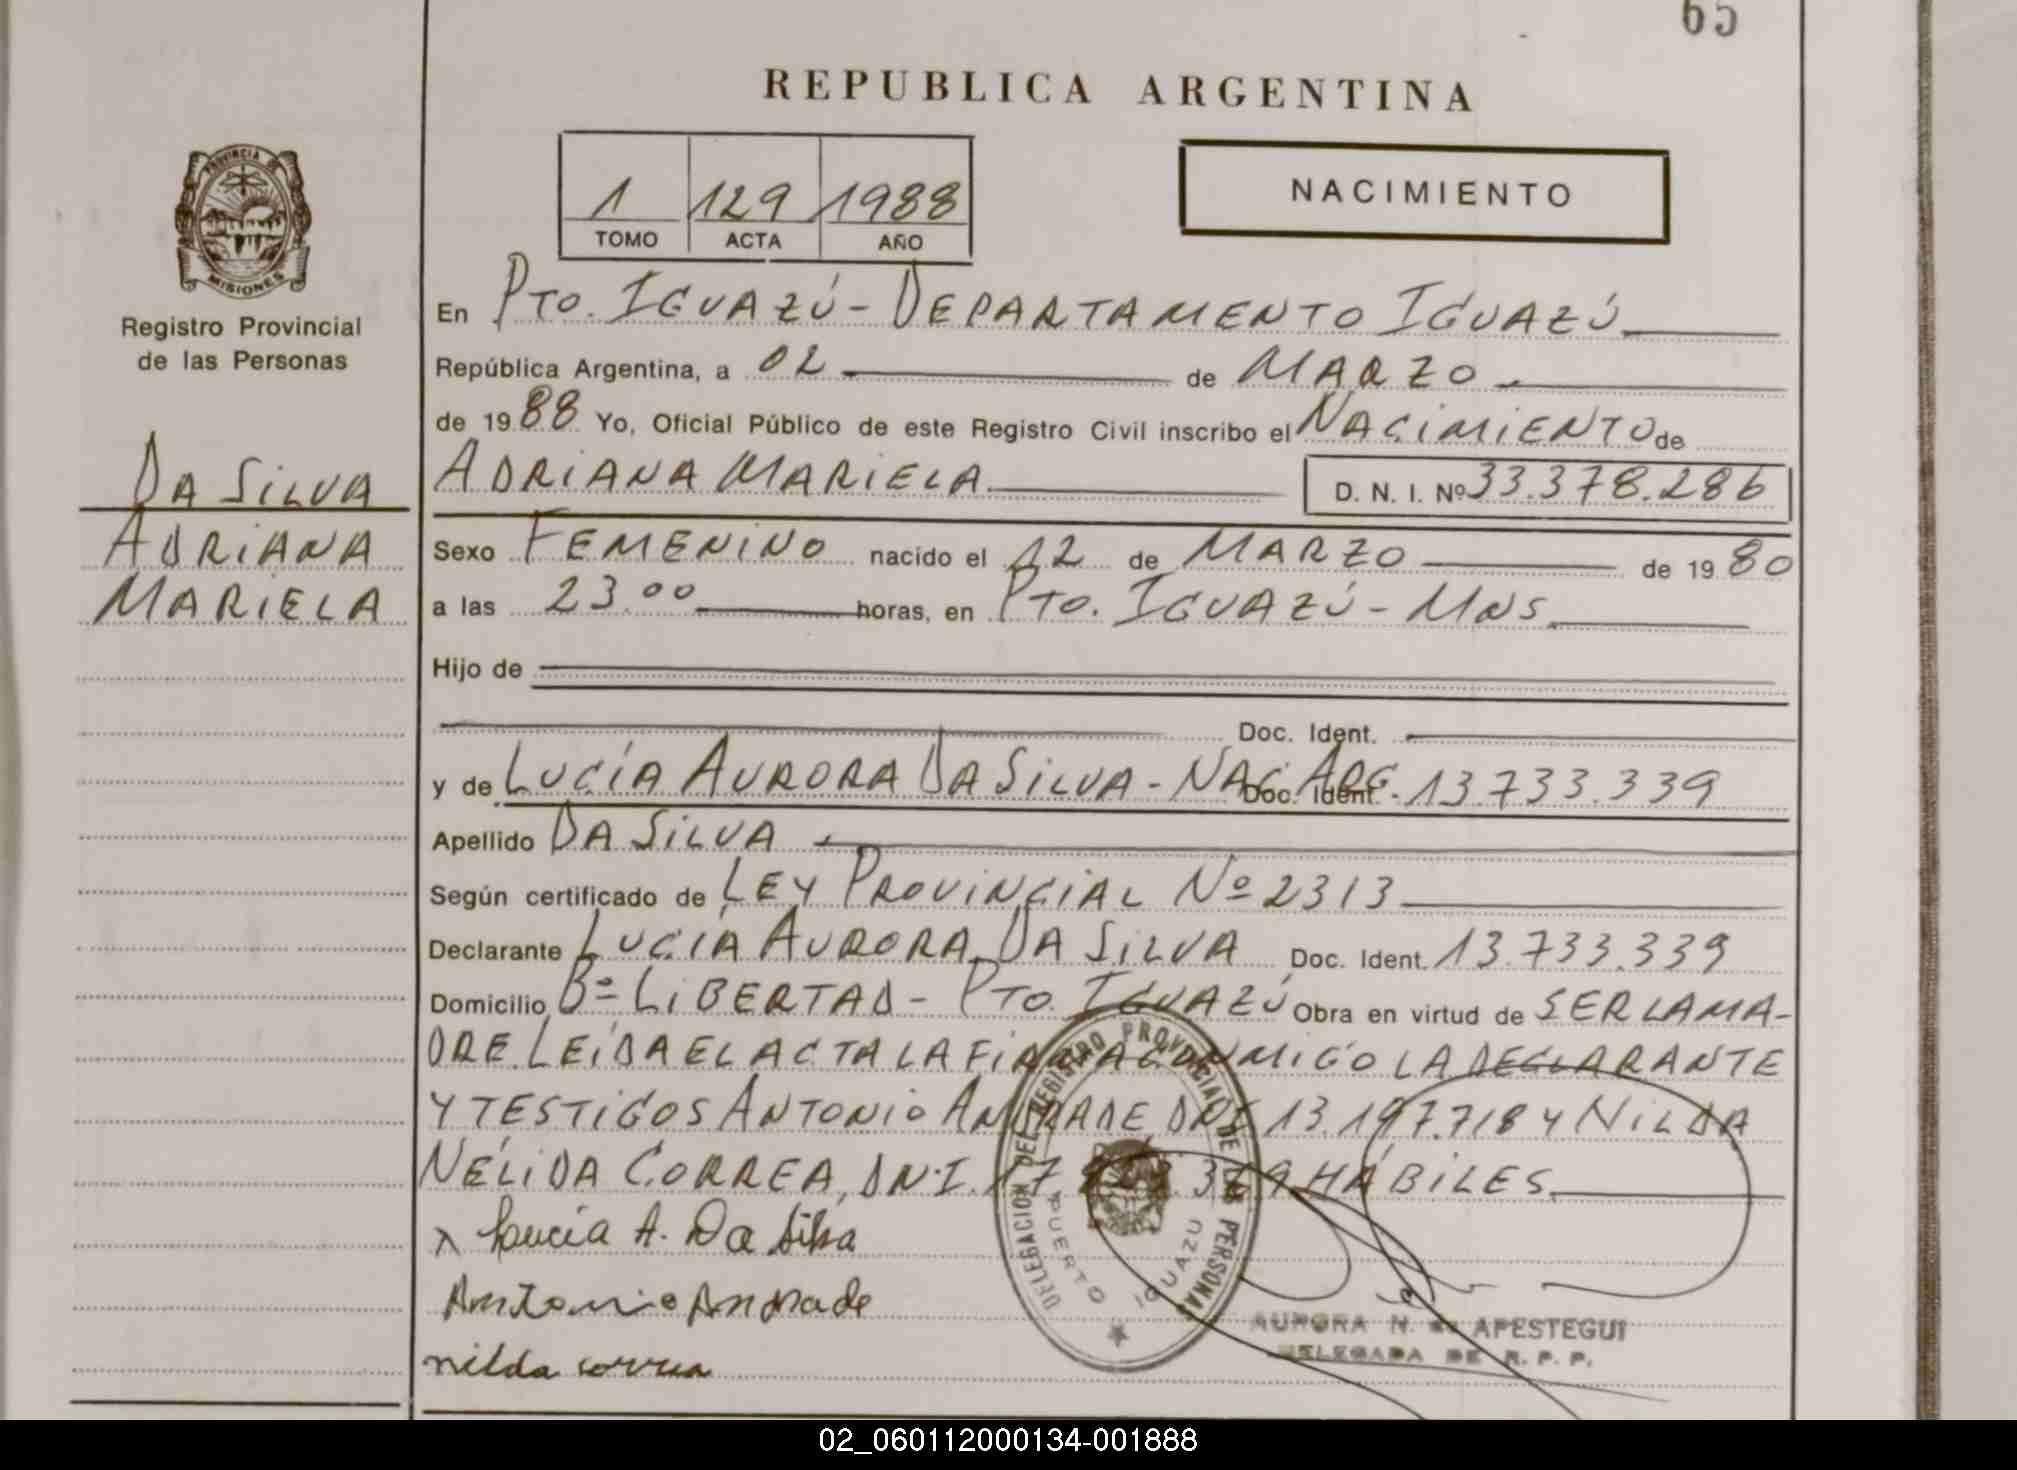 65
REPUBLICA ARGENTINA
PROVINCIA DE
MISIONES
Registro Provincial
de las Personas
1 129 1988
TOMO ACTA AÑO
NACIMIENTO
En PTO. IGUAZÚ - DEPARTAMENTO IGUAZÚ
República Argentina, a 02 de MARZO
de 1988 Yo, Oficial Público de este Registro Civil inscribo el NACIMIENTO de
DA SILVA
ADRIANA
MARIELA
ADRIANA MARIELA D. N. I. Nº 33.378.286
Sexo FEMENINO nacido el 12 de MARZO de 1980
a las 23.00 horas, en PTO. IGUAZÚ - MNS.
Hijo de
Doc. Ident.
y de LUCÍA AURORA DA SILVA - NAC. ARG. Doc. Ident. 13.733.339
Apellido DA SILVA
Según certificado de LEY PROVINCIAL Nº 2313
Declarante LUCÍA AURORA DA SILVA Doc. Ident. 13.733.339
Domicilio Bº LIBERTAD - PTO. IGUAZÚ Obra en virtud de SER LA MA-
DRE. LEÍDA EL ACTA LA FIRMA CONMIGO LA DECLARANTE
Y TESTIGOS ANTONIO ANDRADE, DNI 13.197.718 Y NILDA
NÉLIDA CORREA, DN.I. HÁBILES.
x Lucia A. Da Silva
Antonio Andrade
nilda correa
DELEGACION DEL REGISTRO PROVINCIAL DE LAS PERSONAS
PUERTO IGUAZU
AURORA N. de APESTEGUI
DELEGADA DE R. P. P.
02_060112000134-001888